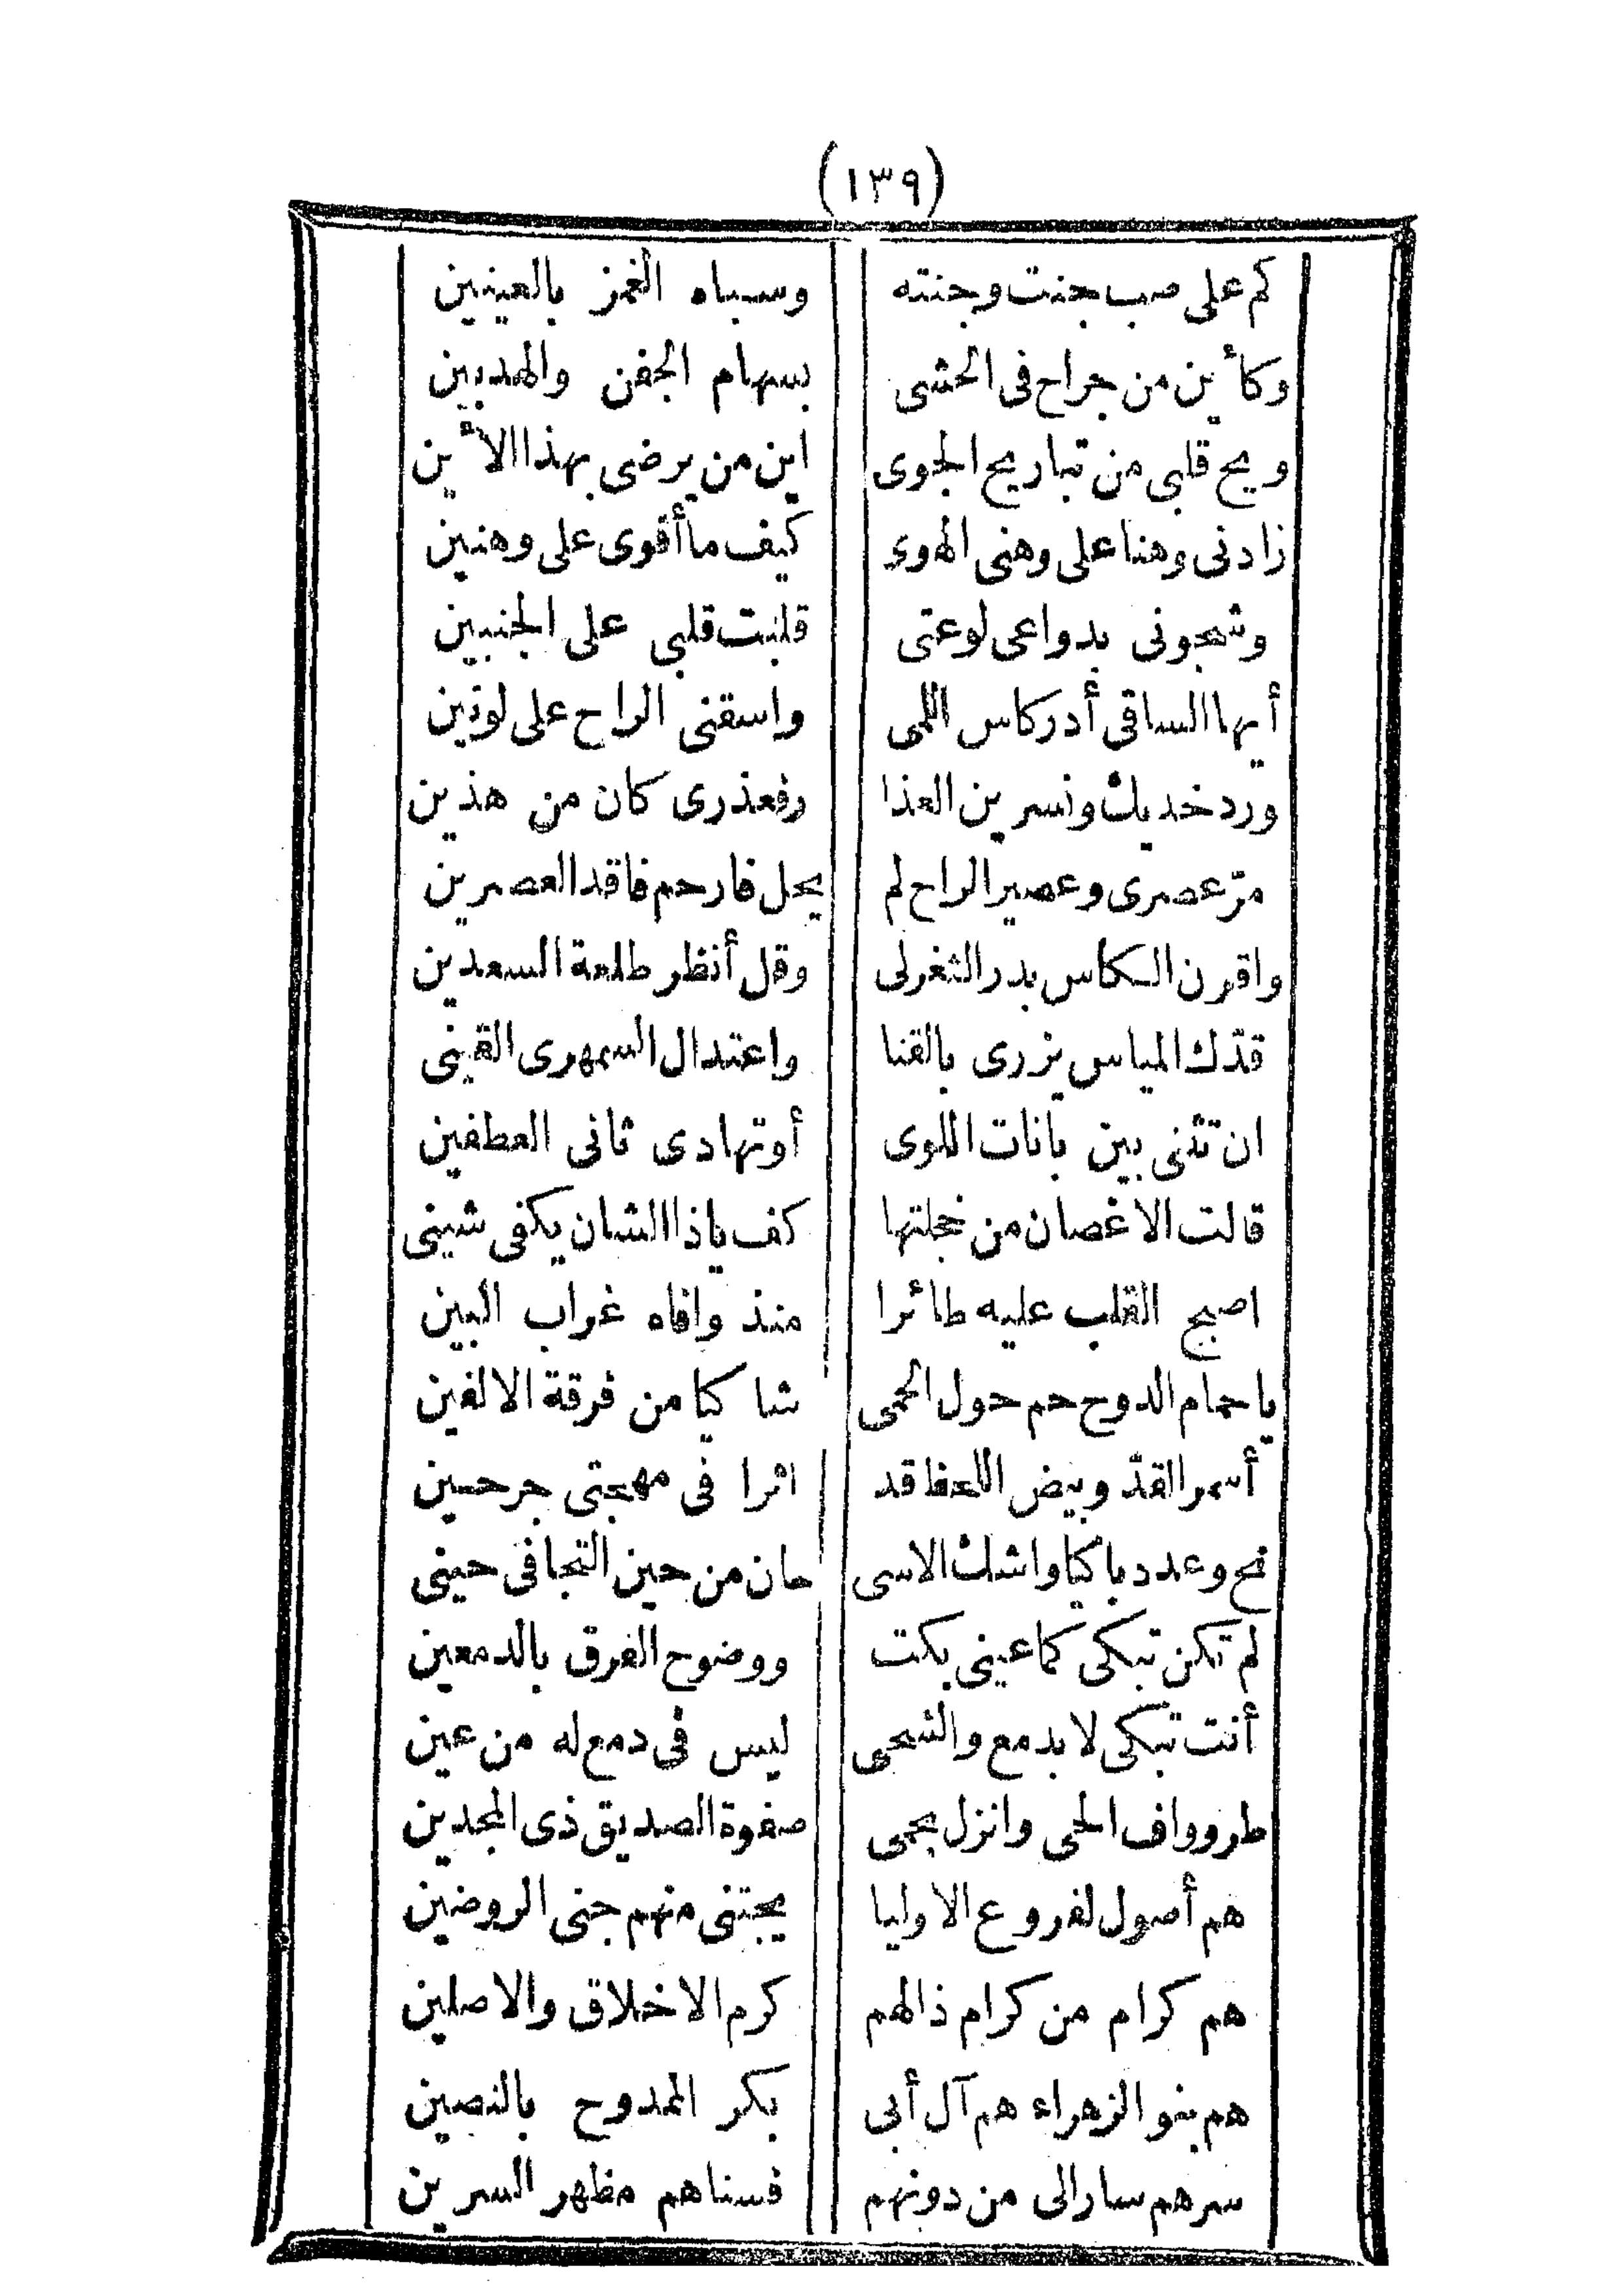 (١٣٩)
كم على صب جنت وجنته وسباه الغمز بالعينين
وكأين من جراح فى الحشى بسهام الجفن والهدبين
ويح قلبى من تباريح الجوى اين من يرضى بهذا الأين
زادنى وهنا على وهنى الهوى كيف ما أقوى على وهنين
وشجونى بدواعى لوعتى قلبت قلبى على الجنبين
أيها الساقى أدر كاس اللمى واسقنى الراح على لونين
ورد خديك ونسرين العذا رفعذرى كان من هذين
مرّ عصرى وعصير الراح لم يحل فارحم فاقد العصرين
واقرن الكاس بدر الثغر لى وقل أنظر طلعة السعدين
قدّك المياس يزرى بالقنا واعتدال السمهرى القينى
ان تثنى بين بانات اللوى أوتهادى ثانى العطفين
قالت الاغصان من خجلتها كف ياذا الشان يكفى شينى
اصبح القلب عليه طائرا منذ وافاه غراب البين
ياحمام الدوح حم حول الحمى شاكيا من فرقة الالفين
أسمر القدّ وبيض اللحظ قد اثرا فى مهجتى جرحين
نح وعدد باكيا واشك الاسى حان من حين التجافى حينى
لم تكن تبكى كما عينى بكت ووضوح الفرق بالدمعين
أنت تبكى لا بدمع والشجى ليس فى دمع له من عين
طر وواف الحى وانزل بحمى صفوة الصديق ذى المجدين
هم أصول لفروع الاوليا يجتنى منهم جنى الروضين
هم كرام من كرام ذالهم كرم الاخلاق والاصلين
هم بنو الزهراء هم آل أبى بكر الممدوح بالنصين
سرهم سار الى من دونهم فسناهم مظهر السرين